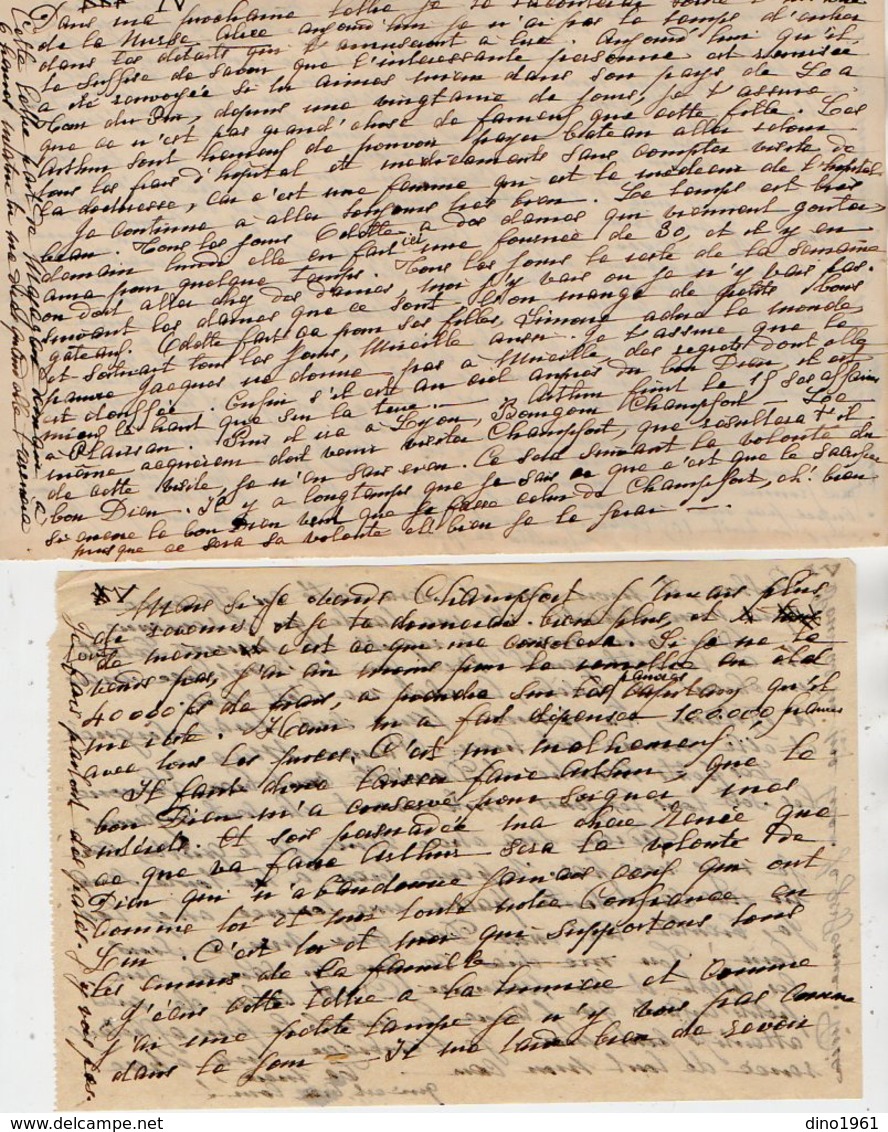 Dans ma prochaine lettre je te raconterai
de la Nurse Alice aujourd'hui je n'ai pas le temps d'entrer
dans les détails qui t'amuseront à lire. Aujourd'hui qu'il
te suffise de savoir que l'intéressante personne est remisée
a été renvoyée si tu aimes mieux dans son pays de Lea
depuis une vingtaine de jours, je t'assure
que ce n'est pas grand'chose de fameux que cette fille. Les
Arthur sont heureux de pouvoir payer bateau aller retour
tous les frais d'hopital et médicaments sans compter visite de
la doctoresse, car c'est une femme qui est le médecin de l'hopital
Je continue à aller toujours très bien. Le temps est très
beau. Tous les jours Odette a des dames qui viennent gouter
demain lundi elle en fait ici une fournée de 30, et il y en
aura pour quelque temps. Tous les jours le reste de la semaine
on doit aller chez des dames, moi j'y vais ou je n'y vais pas
suivant les dames que ce sont. Et on mange de petits bons
gâteaux. Odette fait ça pour ses filles, Simone adore le monde
et sortirait tous les jours, Mireille aussi. Je t'assure que le
pauvre Jacques ne donne pas à Mireille, des regrets dont elle
est étouffée. Enfin s'il est au ciel auprès du bon Dieu il est
mieux là haut que sur la terre. Arthur finit le 15 ses affaires
à Plaisan. Puis il ira à Lyon, Bourgoin Champfort - Lea
même acquéreur doit venir visiter Champfort, que résultera t'il
de cette visite, je n'en sais rien. Ce sera suivant la volonté du
bon Dieu. Il y a longtemps que je sais ce que c'est que le sacrifice
si encore le bon Dieu veut que je fasse celui de Champfort, eh! bien
puisque ce sera sa volonté eh bien je le ferai -.
Cette lettre part de
V
Mais si je vends Champfort j'aurais plus
de revenus et je te donnerai bien plus, et
de même et c'est ce qui me consolera. Si je ne le
vends pas, j'ai au moins pour le remettre en état
40000 fs de frais, à prendre sur les pauvres capitaux qu'il
me reste. Henri m'a fait dépenser 100.000 francs
avec tous les
C'est un malheureux!
Il faut donc laisser faire Arthur, que le
bon Dieu m'a conservé pour soigner mes
intérêts. Et sois persuadée ma chère Renée que
ce que va faire Arthur sera la volonté de
Dieu qui n'abandonne jamais ceux qui ont
comme toi et moi toute notre confiance en
Lui. C'est toi et moi qui supportons tous
les ennuis de la famille
J'écris cette lettre à la lumière et comme
j'ai une petite lampe je n'y vois pas comme
dans le jour - Il me tarde bien de revoir
je n'y vois pas.
dino1961